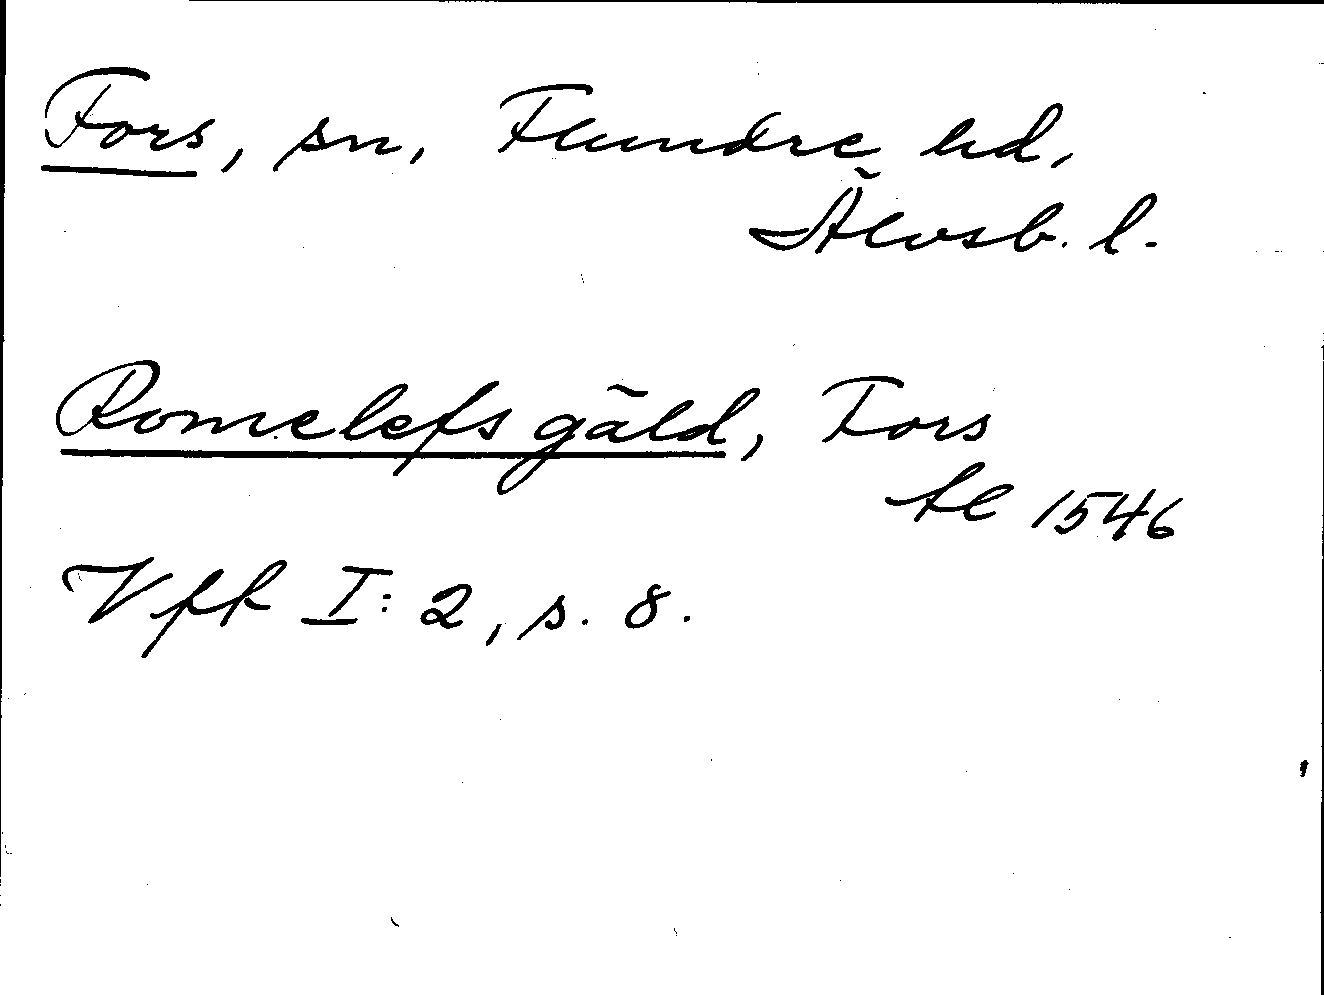 Fors, sn, Flundre hd,
Älvsb. l.
Romelefs gäld, Fors
fl 1546
Vffk I: 2, s. 8.